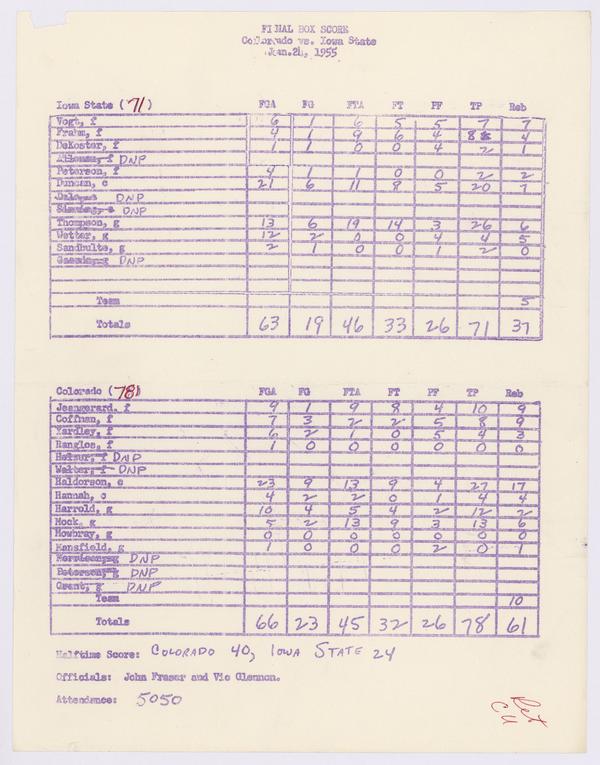 FINAL BOX SCORE
Colorado vs. Iowa State
Jan. 24, 1955
Iowa State (71) FGA FG FTA FT PF TP Reb
Vogt, f 6 1 6 5 5 7 7
Frahm, f 4 1 9 6 4 8 4
DeKoster, f 1 1 0 0 4 2 1
DNP
Peterson, f 4 1 1 0 0 2 2
Duncan, c 21 6 11 8 5 20 7
DNP
DNP
Thompson, g 13 6 19 14 3 26 6
Wetter, g 12 2 0 0 4 4 5
Sandbulte, g 2 1 0 0 1 2 0
DNP
Team 5
Totals 63 19 46 33 26 71 37
Colorado (78) FGA FG FTA FT PF TP Reb
Jeangerard, f 9 1 9 8 4 10 9
Coffman, f 7 3 2 2 5 8 9
Yardley, f 6 2 1 0 5 4 3
Ranglos, f 1 0 0 0 0 0 0
Helzer, f DNP
Walter, f DNP
Haldorson, c 23 9 13 9 4 27 17
Hannah, c 4 2 2 0 1 4 4
Harrold, g 10 4 5 4 2 12 2
Mock, g 5 2 13 9 3 13 6
Mowbray, g 0 0 0 0 0 0 0
Mansfield, g 1 0 0 0 2 0 1
Morrison, g DNP
Peterson, g DNP
Grant, g DNP
Team 10
Totals 66 23 45 32 26 78 61
Halftime Score: COLORADO 40, IOWA STATE 24
Officials: John Fraser and Vic Glennon.
Attendance: 5050
Ret
CU